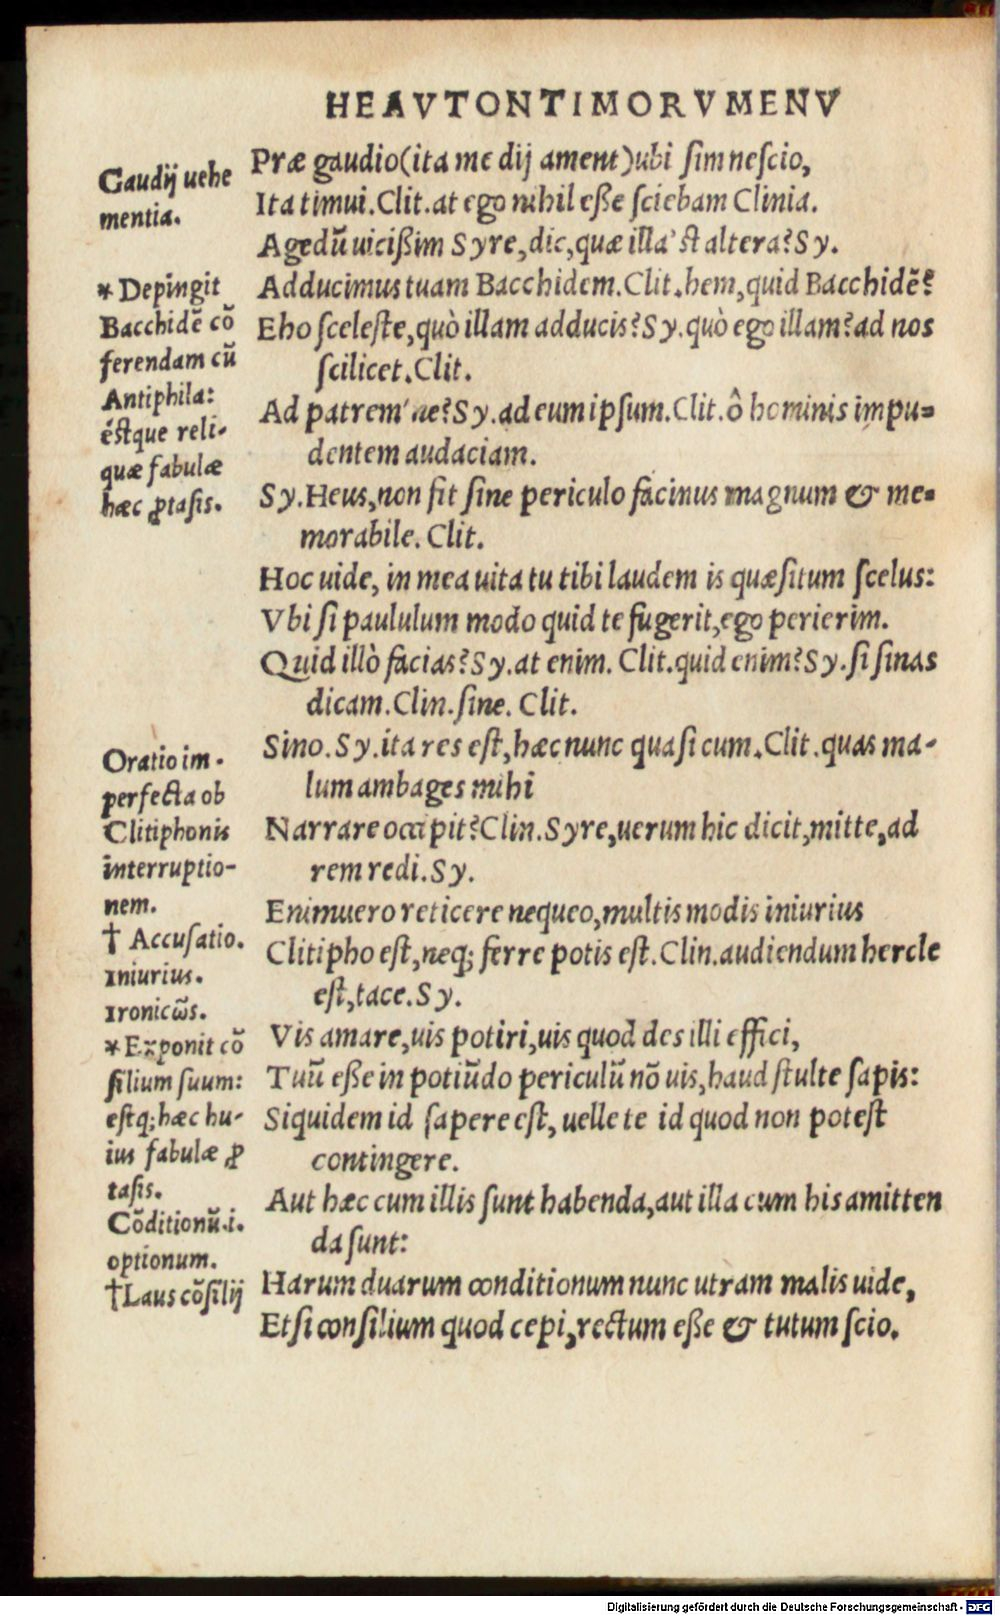 HEAVTONTIMORVMENV
Præ gaudio(ita me dij ament)ubi sim nescio,
Ita timui.Clit.at ego nihil eße sciebam Clinia.
Agedũ uicißim Syre,dic,quæ illa'st altera?Sy.
Adducimus tuam Bacchidem.Clit.hem,quid Bacchidẽ?
Eho sceleste,quò illam adducis?Sy.quò ego illam?ad nos
scilicet.Clit.
Ad patrem'ne?Sy.ad eum ipsum.Clit.ô hominis impu=
dentem audaciam.
Sy.Heus,non fit sine periculo facinus magnum & me=
morabile.Clit.
Hoc uide, in mea uita tu tibi laudem is quæsitum scelus:
Vbi si paululum modo quid te fugerit,ego perierim.
Quid illò facias?Sy.at enim. Clit.quid enim?Sy.si sinas
dicam.Clin.sine. Clit.
Sino.Sy.ita res est,hæc nunc quasi cum.Clit.quas ma-
lum ambages mihi
Narrare occipit?Clin.Syre,uerum hic dicit,mitte,ad
rem redi.Sy.
Enimuero reticere nequeo,multis modis iniurius
Clitipho est,neq; ferre potis est.Clin.audiendum hercle
est,tace.Sy.
Vis amare,uis potiri,uis quod des illi effici,
Tuũ eße in potiũdo periculũ nõ uis,haud stulte sapis:
Siquidem id sapere est, uelle te id quod non potest
contingere.
Aut hæc cum illis sunt habenda,aut illa cum his amitten
da sunt:
Harum duarum conditionum nunc utram malis uide,
Etsi consilium quod cepi,rectum eße & tutum scio.
Gaudij uehe
mentia.
* Depingit
Bacchidẽ cõ
ferendam cũ
Antiphila:
éstque reli-
quæ fabulæ
hæc ꝓtasis.
Oratio im-
perfecta ob
Clitiphonis
interruptio-
nem.
† Accusatio.
Iniurius.
Ironicῶs.
* Exponit cõ
silium suum:
estq; hæc hu-
ius fabulæ ꝓ
tasis.
Cõditionũ.i.
optionum.
†Laus cõsilij
Digitalisierung gefördert durch die Deutsche Forschungsgemeinschaft - DFG